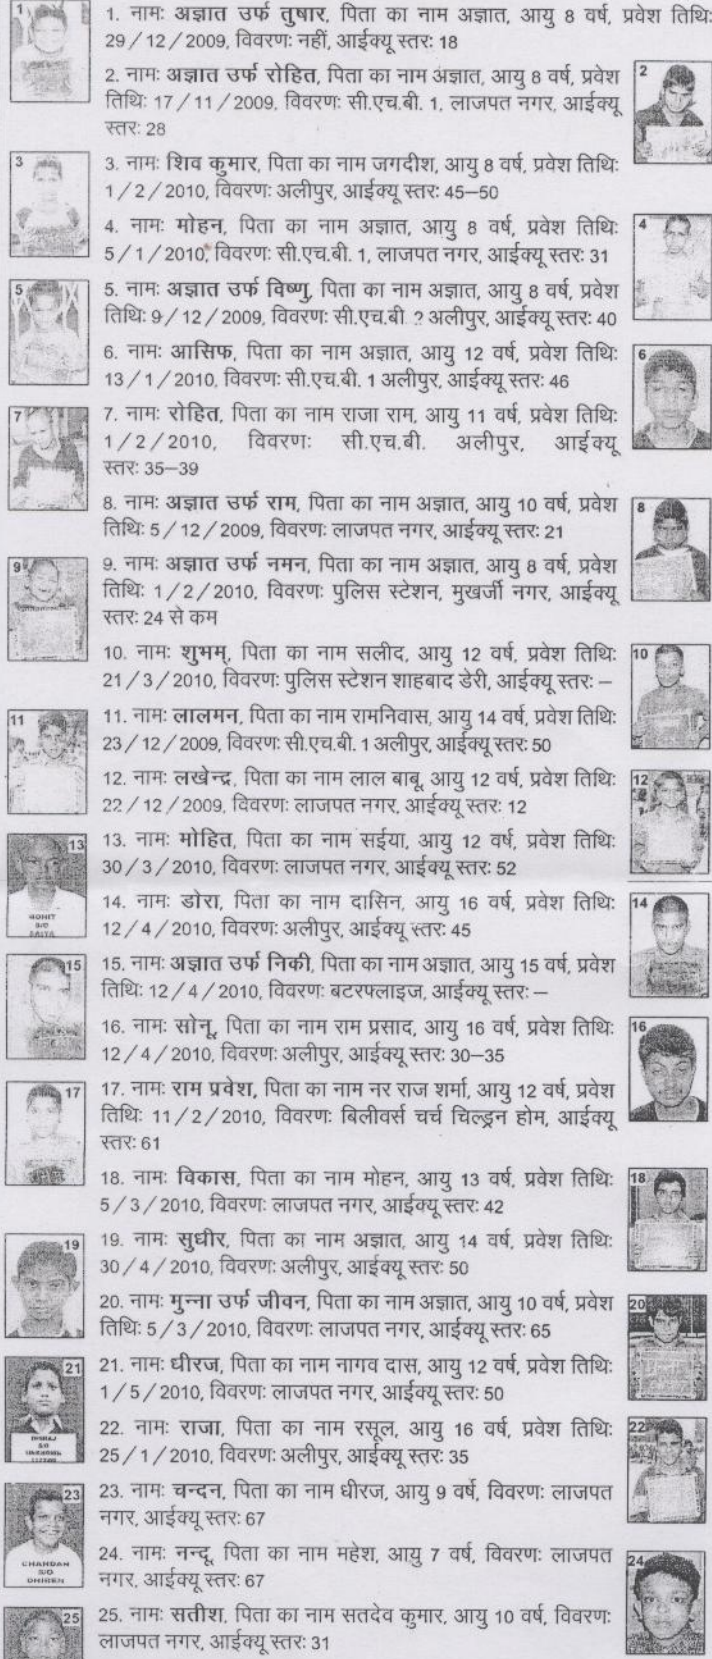 1. नामः अज्ञात उर्फ तुषार, पिता का नाम अज्ञात, आयु 8 वर्ष, प्रवेश तिथिः
29/12/2009, विवरणः नहीं, आईक्यू स्तरः 18
2. नामः अज्ञात उर्फ रोहित, पिता का नाम अज्ञात, आयु 8 वर्ष, प्रवेश
तिथिः 17/11/2009, विवरणः सी.एच.बी. 1, लाजपत नगर, आईक्यू
स्तरः 28
3. नामः शिव कुमार, पिता का नाम जगदीश, आयु 8 वर्ष, प्रवेश तिथिः
1/2/2010, विवरणः अलीपुर, आईक्यू स्तरः 45–50
4. नामः मोहन, पिता का नाम अज्ञात, आयु 8 वर्ष, प्रवेश तिथिः
5/1/2010, विवरणः सी.एच.बी. 1, लाजपत नगर, आईक्यू स्तरः 31
5. नामः अज्ञात उर्फ विष्णु, पिता का नाम अज्ञात, आयु 8 वर्ष, प्रवेश
तिथिः 9/12/2009, विवरणः सी.एच.बी ? अलीपुर, आईक्यू स्तरः 40
6. नामः आसिफ, पिता का नाम अज्ञात, आयु 12 वर्ष, प्रवेश तिथिः
13/1/2010, विवरणः सी.एच.बी. 1 अलीपुर, आईक्यू स्तरः 46
7. नामः रोहित, पिता का नाम राजा राम, आयु 11 वर्ष, प्रवेश तिथिः
1/2/2010, विवरणः सी.एच.बी. अलीपुर, आईक्यू
स्तरः 35–39
8. नामः अज्ञात उर्फ राम, पिता का नाम अज्ञात, आयु 10 वर्ष, प्रवेश
तिथिः 5/12/2009, विवरणः लाजपत नगर, आईक्यू स्तरः 21
9. नामः अज्ञात उर्फ नमन, पिता का नाम अज्ञात, आयु 8 वर्ष, प्रवेश
तिथिः 1/2/2010, विवरणः पुलिस स्टेशन, मुखर्जी नगर, आईक्यू
स्तरः 24 से कम
10. नामः शुभम्, पिता का नाम सलीद, आयु 12 वर्ष, प्रवेश तिथिः
21/3/2010, विवरणः पुलिस स्टेशन शाहबाद डेरी, आईक्यू स्तरः –
11. नामः लालमन, पिता का नाम रामनिवास, आयु 14 वर्ष, प्रवेश तिथिः
23/12/2009, विवरणः सी.एच.बी. 1 अलीपुर, आईक्यू स्तरः 50
12. नामः लखेन्द्र, पिता का नाम लाल बाबू, आयु 12 वर्ष, प्रवेश तिथिः
22/12/2009, विवरणः लाजपत नगर, आईक्यू स्तरः 12
13. नामः मोहित, पिता का नाम सईया, आयु 12 वर्ष, प्रवेश तिथिः
30/3/2010, विवरणः लाजपत नगर, आईक्यू स्तरः 52
14. नामः डोरा, पिता का नाम दासिन, आयु 16 वर्ष, प्रवेश तिथिः
12/4/2010, विवरणः अलीपुर, आईक्यू स्तरः 45
15. नामः अज्ञात उर्फ निकी, पिता का नाम अज्ञात, आयु 15 वर्ष, प्रवेश
तिथिः 12/4/2010, विवरणः बटरफ्लाइज, आईक्यू स्तरः –
16. नामः सोनू, पिता का नाम राम प्रसाद, आयु 16 वर्ष, प्रवेश तिथिः
12/4/2010, विवरणः अलीपुर, आईक्यू स्तरः 30–35
17. नामः राम प्रवेश, पिता का नाम नर राज शर्मा, आयु 12 वर्ष, प्रवेश
तिथिः 11/2/2010, विवरणः बिलीवर्स चर्च चिल्ड्रन होम, आईक्यू
स्तरः 61
18. नामः विकास, पिता का नाम मोहन, आयु 13 वर्ष, प्रवेश तिथिः
5/3/2010, विवरणः लाजपत नगर, आईक्यू स्तरः 42
19. नामः सुधीर, पिता का नाम अज्ञात, आयु 14 वर्ष, प्रवेश तिथिः
30/4/2010, विवरणः अलीपुर, आईक्यू स्तरः 50
20. नामः मुन्ना उर्फ जीवन, पिता का नाम अज्ञात, आयु 10 वर्ष, प्रवेश
तिथिः 5/3/2010, विवरणः लाजपत नगर, आईक्यू स्तरः 65
21. नामः धीरज, पिता का नाम नागव दास, आयु 12 वर्ष, प्रवेश तिथिः
1/5/2010, विवरणः लाजपत नगर, आईक्यू स्तरः 50
22. नामः राजा, पिता का नाम रसूल, आयु 16 वर्ष, प्रवेश तिथिः
25/1/2010, विवरणः अलीपुर, आईक्यू स्तरः 35
23. नामः चन्दन, पिता का नाम धीरज, आयु 9 वर्ष, विवरणः लाजपत
नगर, आईक्यू स्तरः 67
24. नामः नन्दू, पिता का नाम महेश, आयु 7 वर्ष, विवरणः लाजपत
नगर, आईक्यू स्तरः 67
25. नामः सतीश, पिता का नाम सतदेव कुमार, आयु 10 वर्ष, विवरणः
लाजपत नगर, आईक्यू स्तरः 31
1
2
3
4
5
6
7
8
9
10
11
12
13
MOHIT
S/O
SAIYA
14
15
16
17
18
19
20
21
S/O
22
23
CHANDAN
S/O
DHIREN
24
25